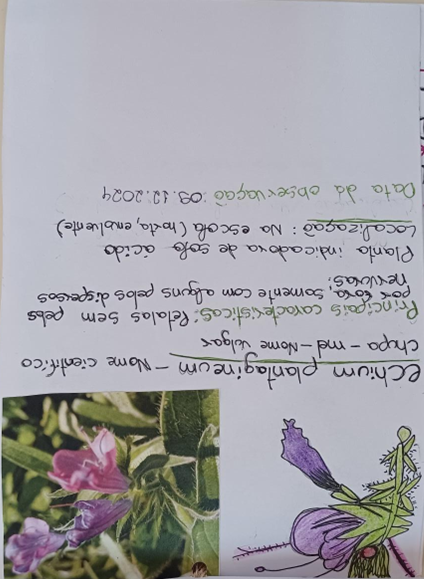 Echium plantagineum - Nome científico
Chupa - mel - Nome vulgar
Principais características: Petalas sem pelos
por fora, somente com alguns pelos dispersos
nervuras.
Planta indicadora de solo ácido
Localização: Na escola (horta, envolvente)
Data da observação: 09.12.2024